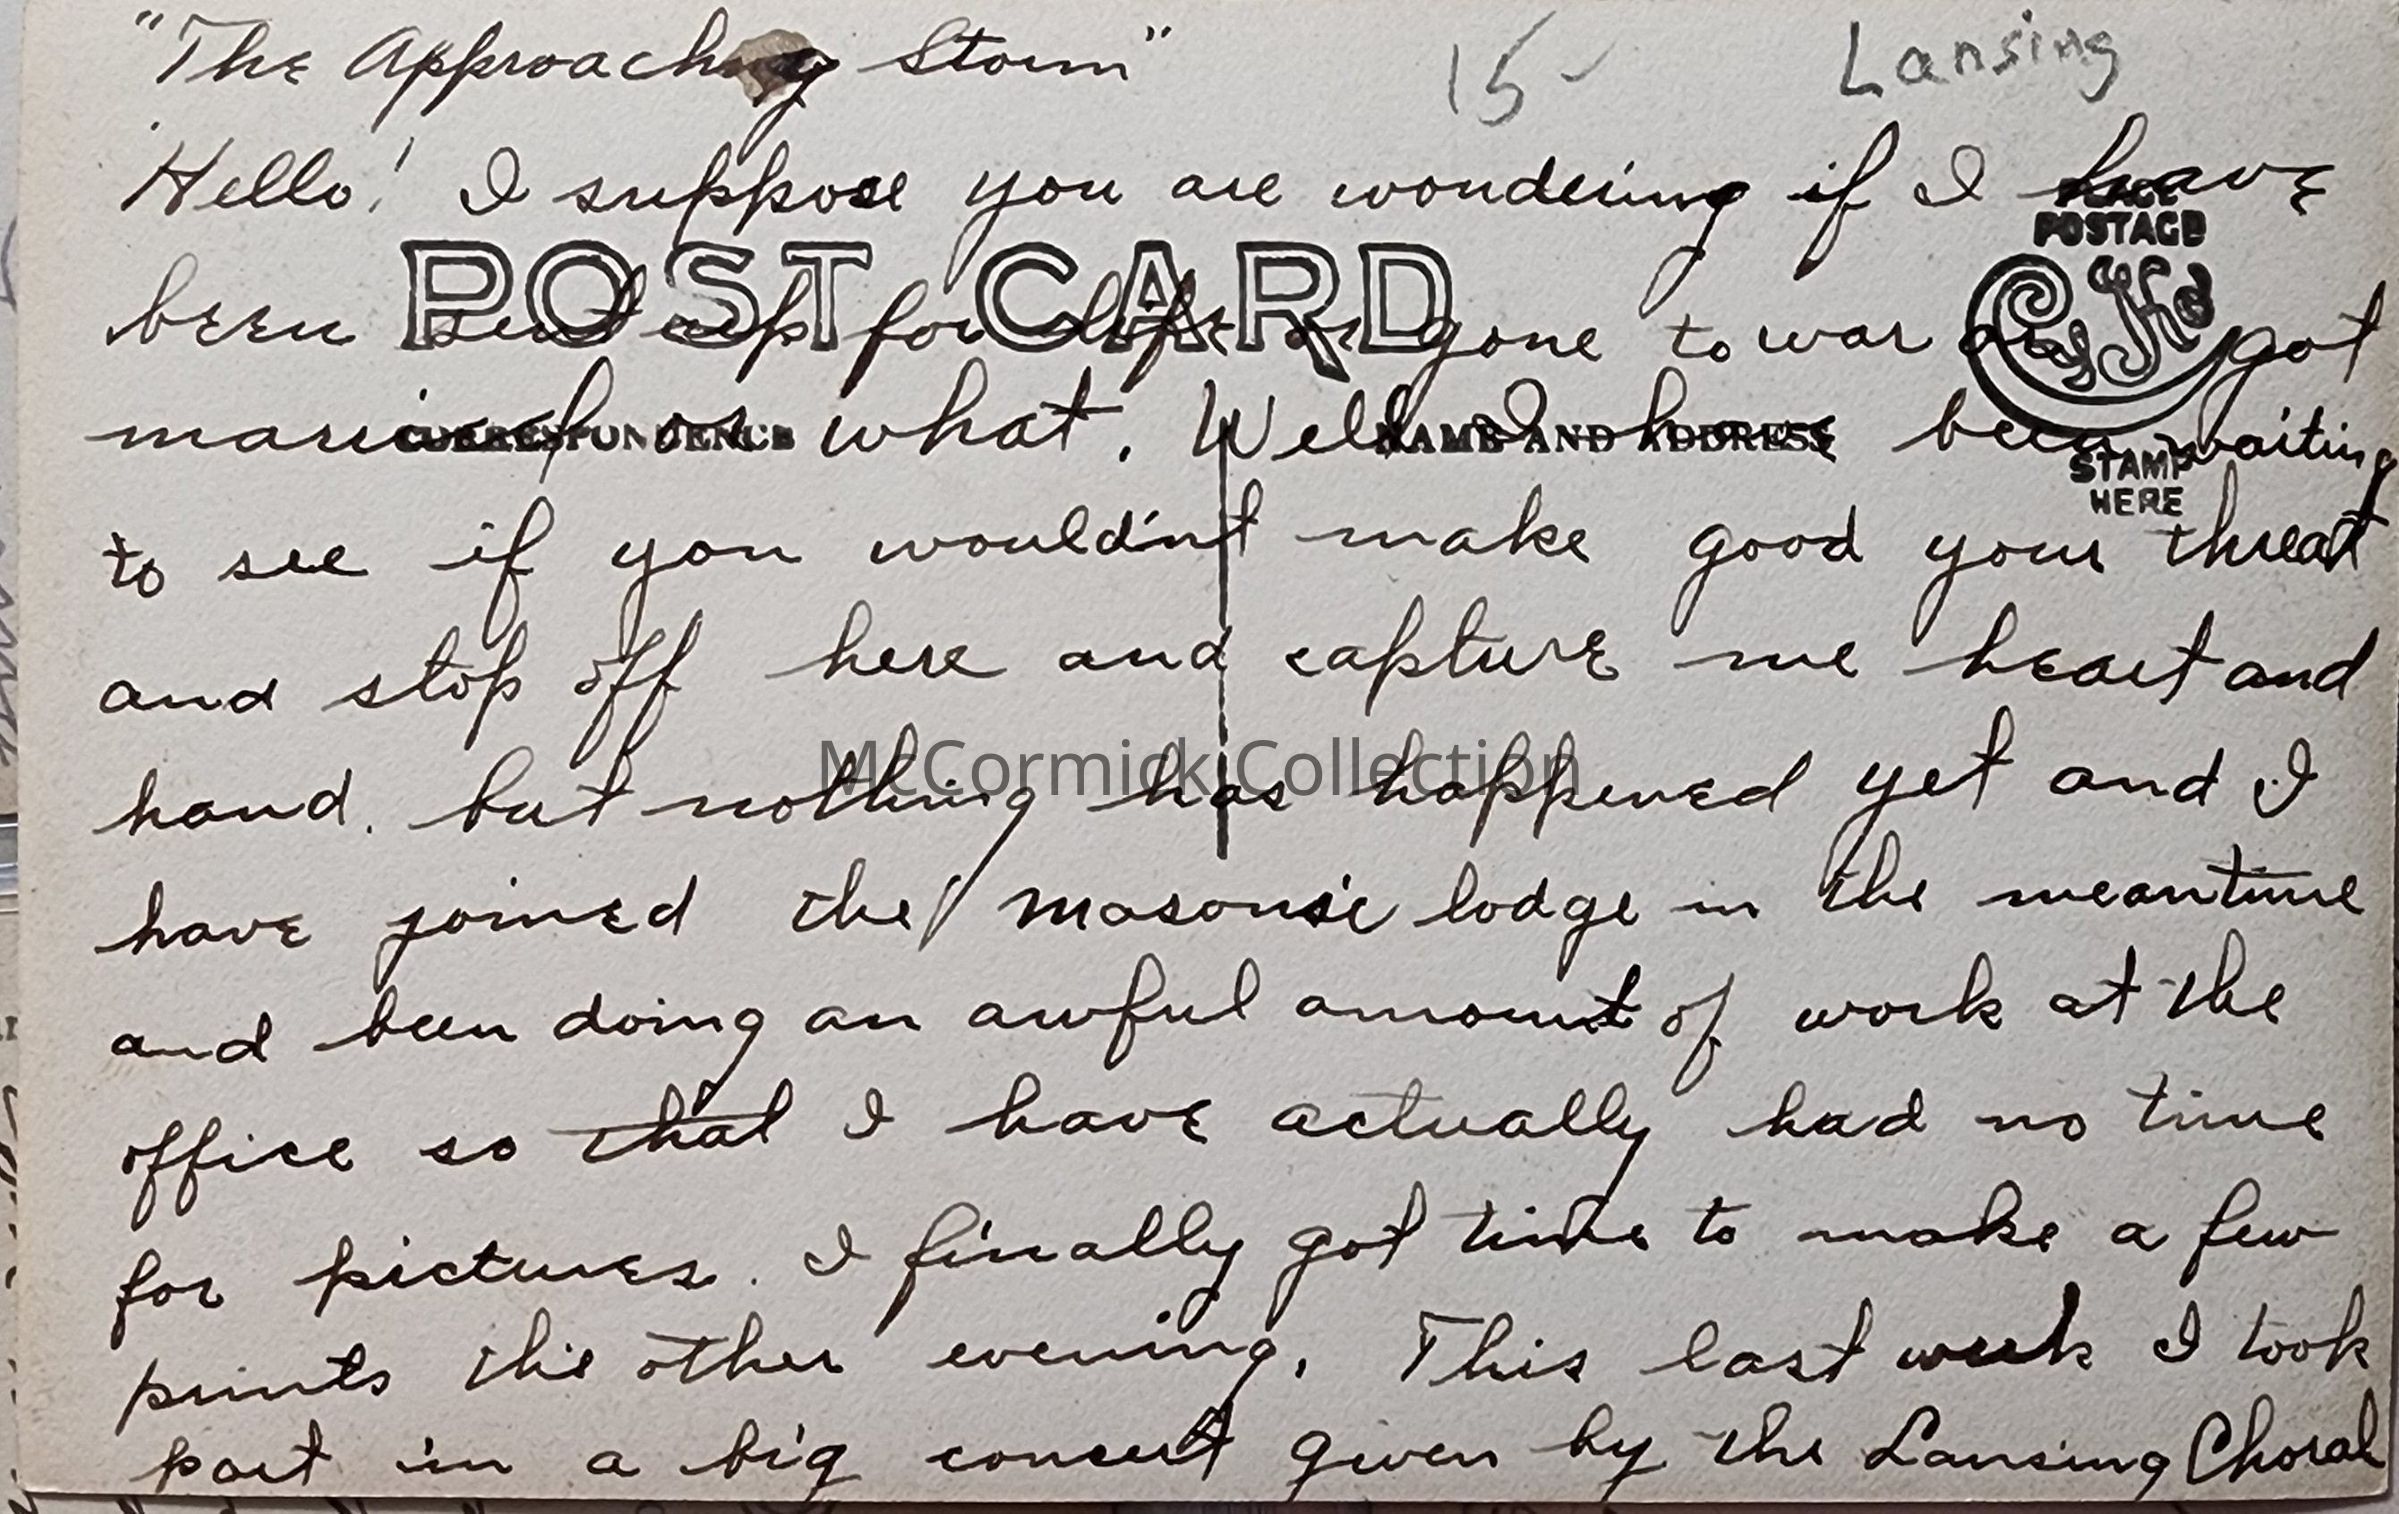 "The Approaching Storm" 15- Lansing
Hello! I suppose you are wondering if I have
PLACE
POSTAGE
POST CARD
been sent up for life or gone to war or got
CORRESPONDENCE NAME AND ADDRESS
married or what. Well I have been waiting
STAMP
HERE
to see if you wouldn't make good your threat
and stop off here and capture me heart and
McCormick Collection
hand. but nothing has happened yet and I
have joined the masonic lodge in the meantime
and been doing an awful amount of work at the
office so that I have actually had no time
for pictures. I finally got time to make a few
prints the other evening. This last week I took
part in a big concert given by the Lansing Choral